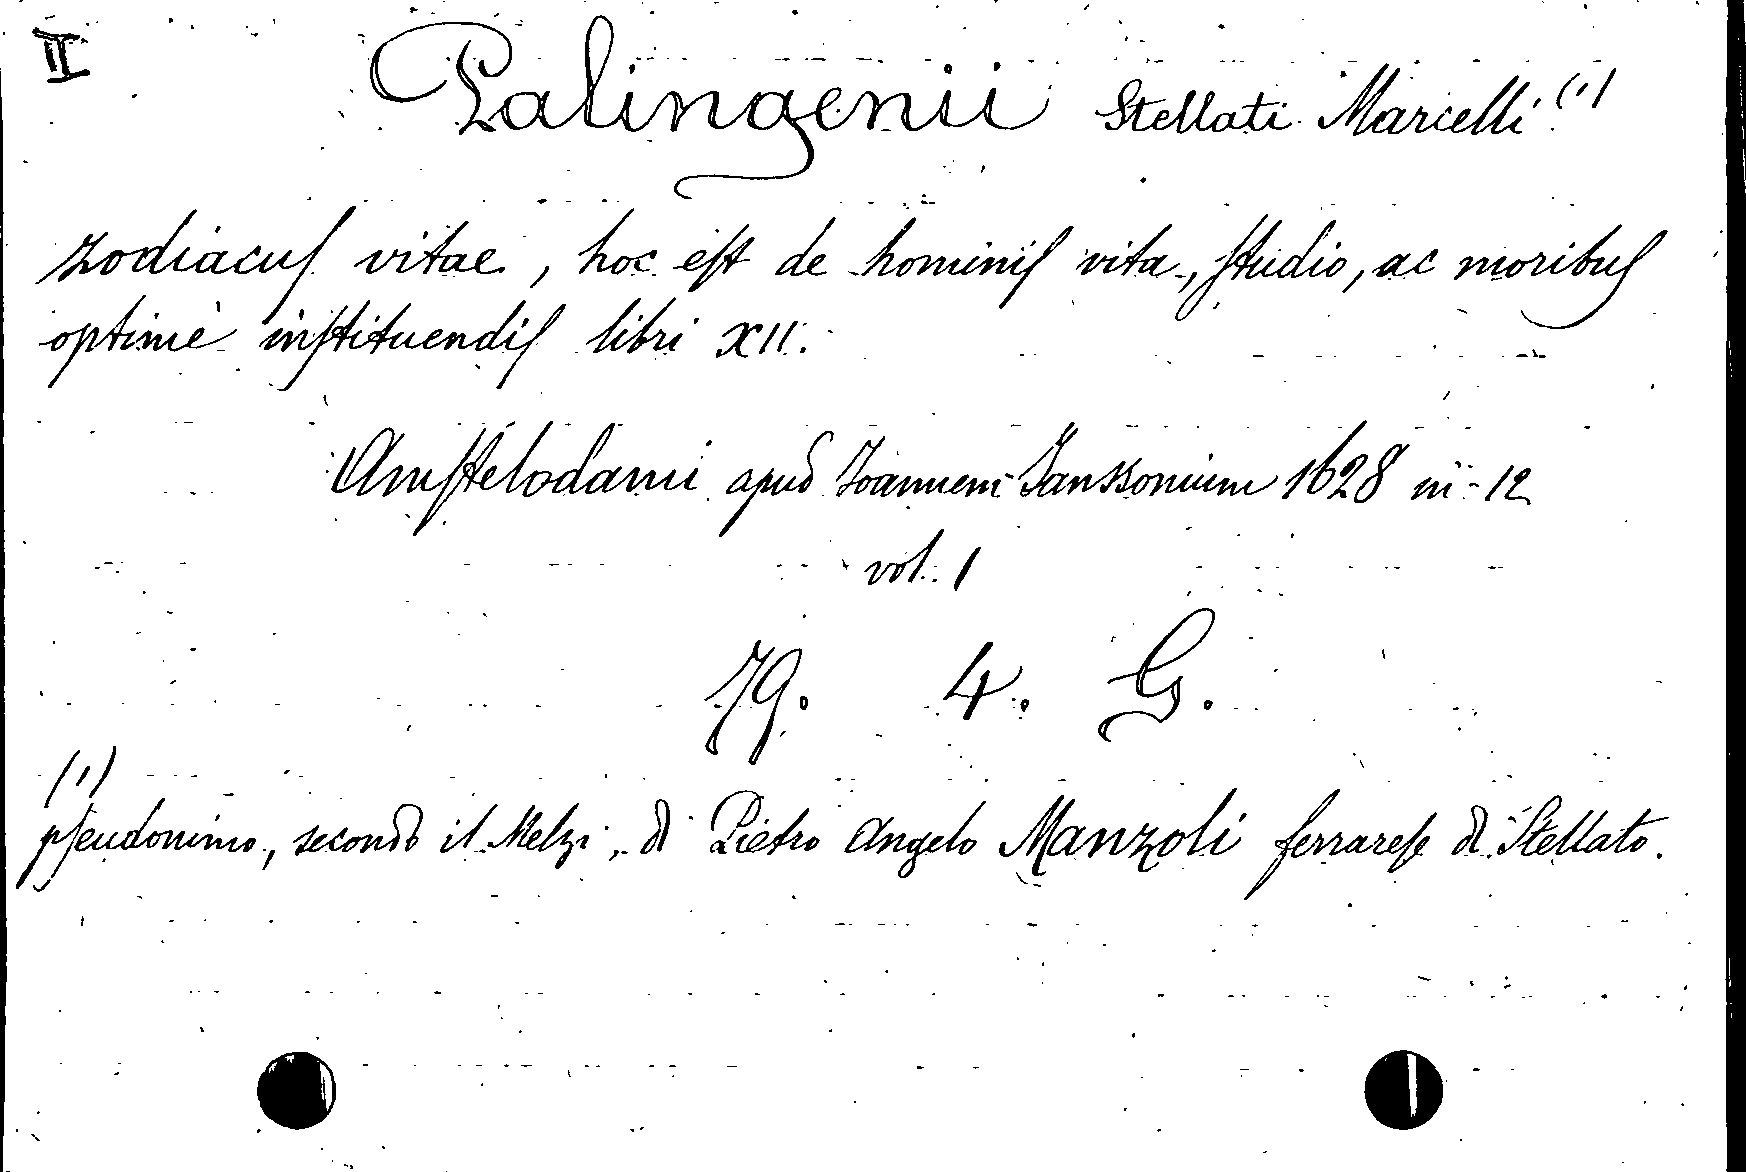 II
Palingenii Stellati Marcelli (1)
Zodiacuſ vitae, hoc eſt de hominiſ vita, ſtudio, ac moribuſ
optimè inſtituendiſ libri XII.
Amſtelodami apud Ioannem Janssonium 1628 in-12
vol. 1
79. 4. G.
(1)
pſeudonimo, secondo il Melzi, di Pietro Angelo Manzoli ferrareſe di Stellato.